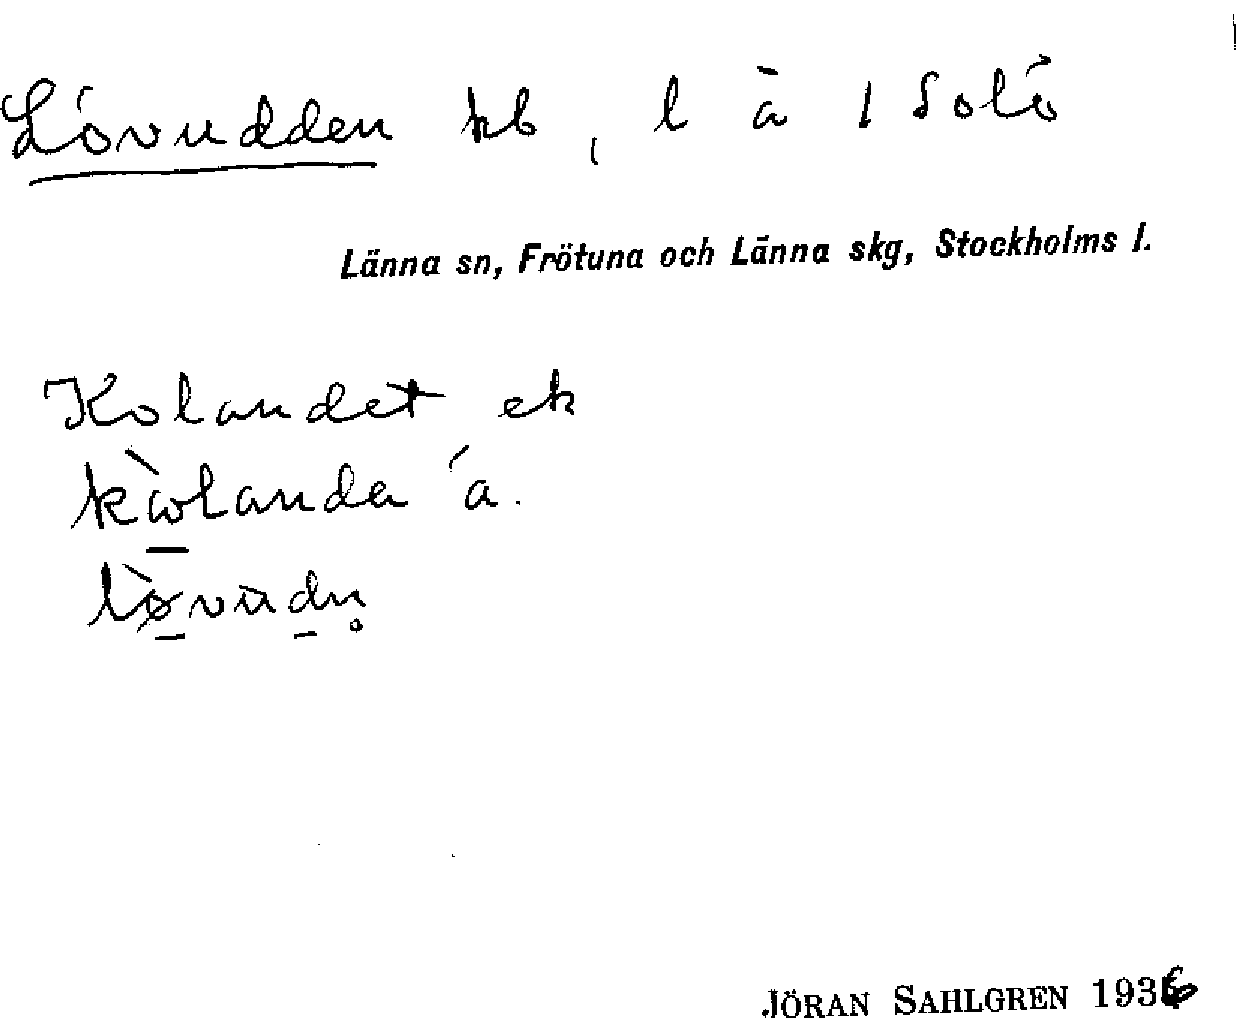 Lövudden kb, l ä 1 Solö
Länna sn, Frötuna och Länna skg, Stockholms l.
Kolandet ek
kὼlanda ´a.
lø̀vùdn̥
JÖRAN SAHLGREN 1936